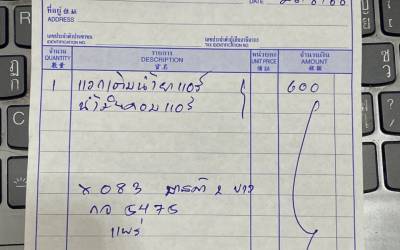 ที่อยู่ 住址 DATE
ADDRESS
เลขประจำตัวประชาชน
IDENTIFICATION NO.
เลขประจำตัวผู้เสียภาษีอากร
TAX IDENTIFICATION NO.
จำนวน รายการ หน่วยละ จำนวนเงิน
QUANTITY DESCRIPTION UNIT PRICE AMOUNT
數量 貨名 價錢 銀額
1 แวกเติมน้ำยาแอร์ 600
น้ำมันคอมแอร์
083
กอ 5475
แพร่